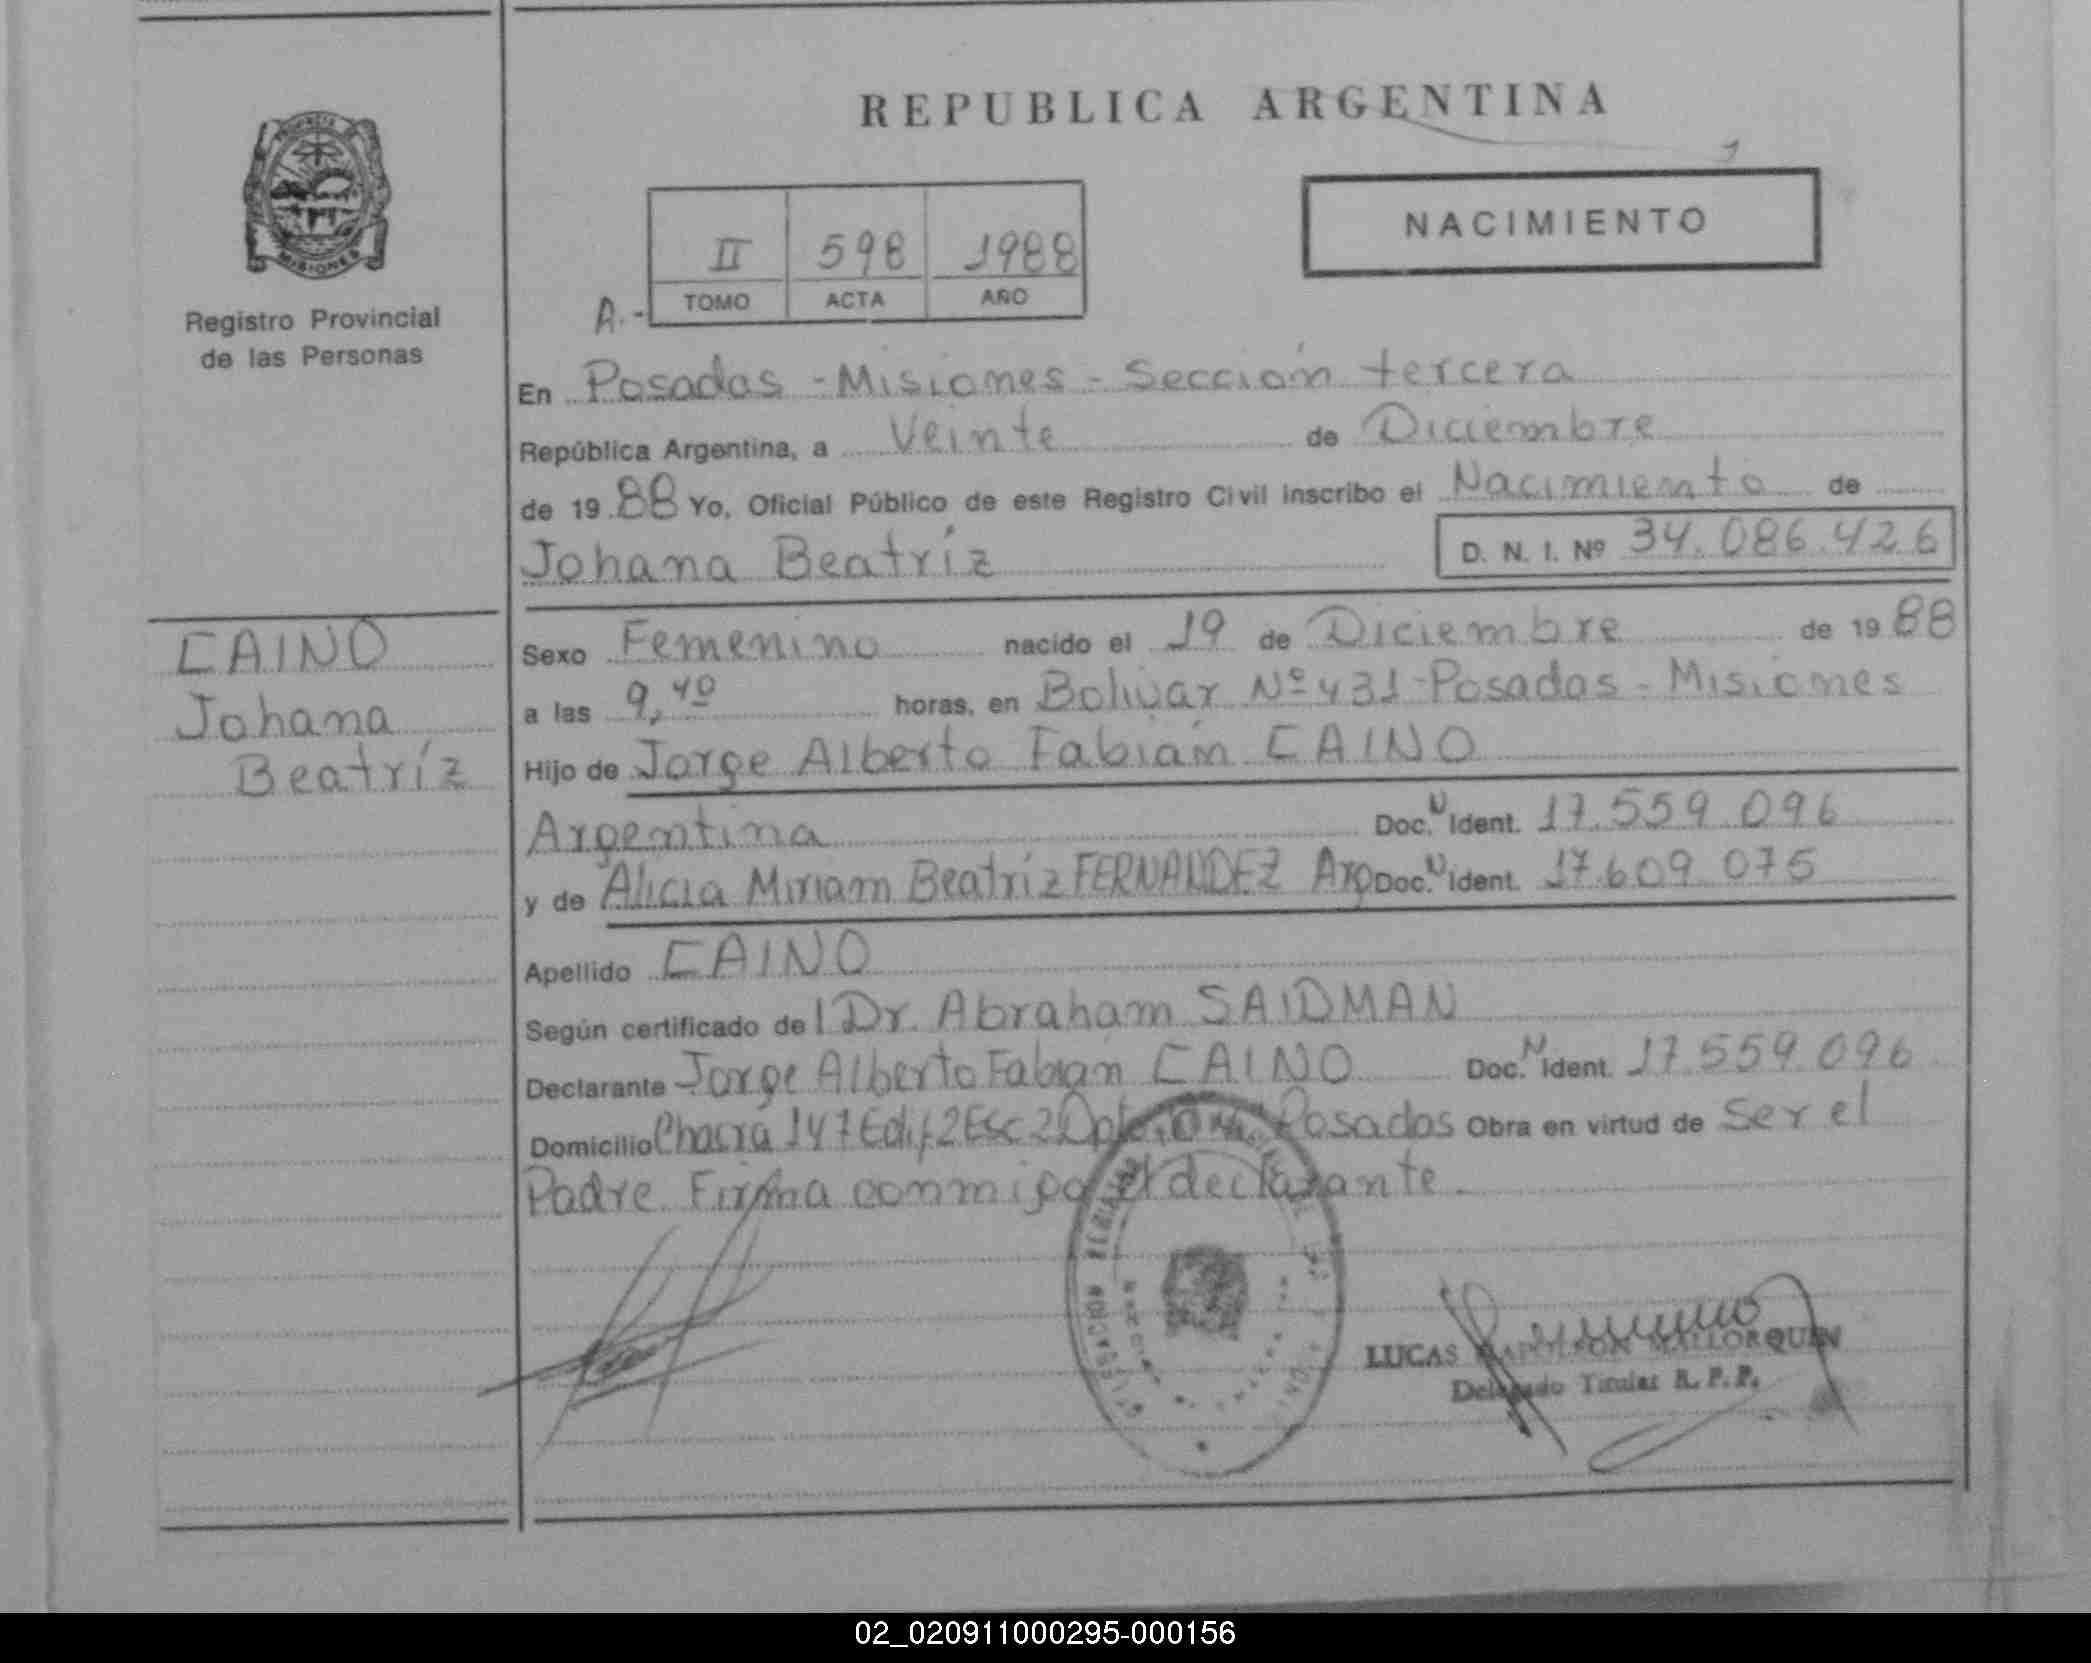 REPUBLICA ARGENTINA
NACIMIENTO
II 598 1988
A.- TOMO ACTA AÑO
PROVINCIA DE MISIONES
Registro Provincial
de las Personas
En Posadas - Misiones - Sección tercera
República Argentina, a Veinte de Diciembre
de 1988 Yo, Oficial Público de este Registro Civil inscribo el Nacimiento de
Johana Beatríz D. N. I. Nº 34.086.426
CAINO
Johana
Beatríz
Sexo Femenino nacido el 19 de Diciembre de 1988
a las 9,40 horas, en Bolivar Nº 431 - Posadas - Misiones
Hijo de Jorge Alberto Fabián CAINO
Argentina Doc. N Ident. 17.559.096
y de Alicia Miriam Beatríz FERNANDEZ Arg Doc. N Ident. 17.609.075
Apellido CAINO
Según certificado del Dr. Abraham SAIDMAN
Declarante Jorge Alberto Fabián CAINO Doc. N Ident. 17.559.096
Domicilio Chacra 147 Edif 2 Esc 2 Dpto Posadas Obra en virtud de ser el
Padre. Firma conmigo el declarante.
LUCAS NAPOLEON MALLORQUIN
Delegado Titular R. P. P.
02_020911000295-000156